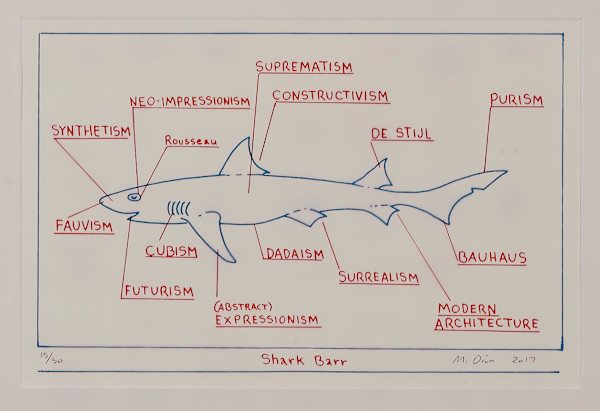 SUPREMATISM
CONSTRUCTIVISM
NEO-IMPRESSIONISM
PURISM
SYNTHETISM
ROUSSEAU
DE STIJL
FAUVISM
CUBISM
DADAISM
SURREALISM
BAUHAUS
FUTURISM
(ABSTRACT)
EXPRESSIONISM
MODERN
ARCHITECTURE
15/30
Shark Barr
M. Dion 2017